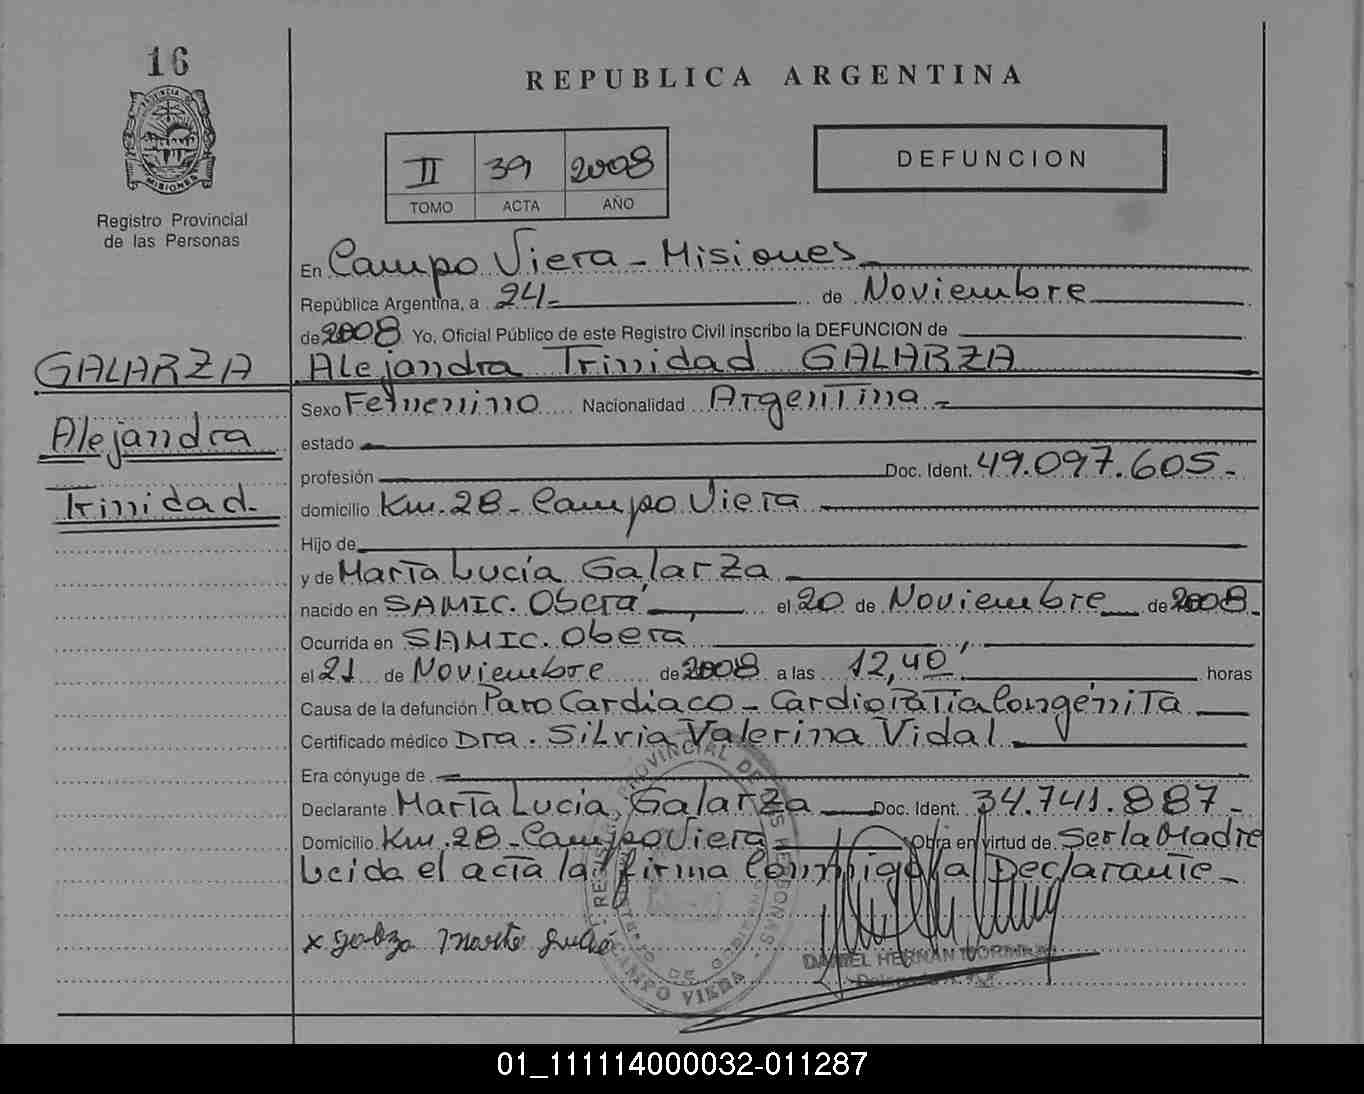 16
PROVINCIA DE
MISIONES
Registro Provincial
de las Personas
REPUBLICA ARGENTINA
II 39 2008
TOMO ACTA AÑO
DEFUNCION
En Campo Viera - Misiones
República Argentina, a 24 de Noviembre
de 2008 Yo, Oficial Público de este Registro Civil inscribo la DEFUNCION de
GALARZA Alejandra Trinidad GALARZA
Sexo Femenino Nacionalidad Argentina -
Alejandra estado
profesión Doc. Ident. 49.097.605.-
Trinidad. domicilio Km. 28 - Campo Viera
Hijo de
y de Marta Lucía Galarza
nacido en SAMIC. Oberá el 20 de Noviembre de 2008.
Ocurrida en SAMIC. Oberá
el 21 de Noviembre de 2008 a las 12,40 horas
Causa de la defunción Paro Cardiaco - Cardiopatía Congénita
Certificado médico Dra. Silvia Valerina Vidal
Era cónyuge de
Declarante Marta Lucia Galarza Doc. Ident. 34.741.887-
Domicilio Km. 28 - Campo Viera Obra en virtud de Ser la Madre
Leida el acta la firma conmigo la Declarante -
x galarza marta lucia
DANIEL HERNAN
CAMPO VIERA
01_111114000032-011287